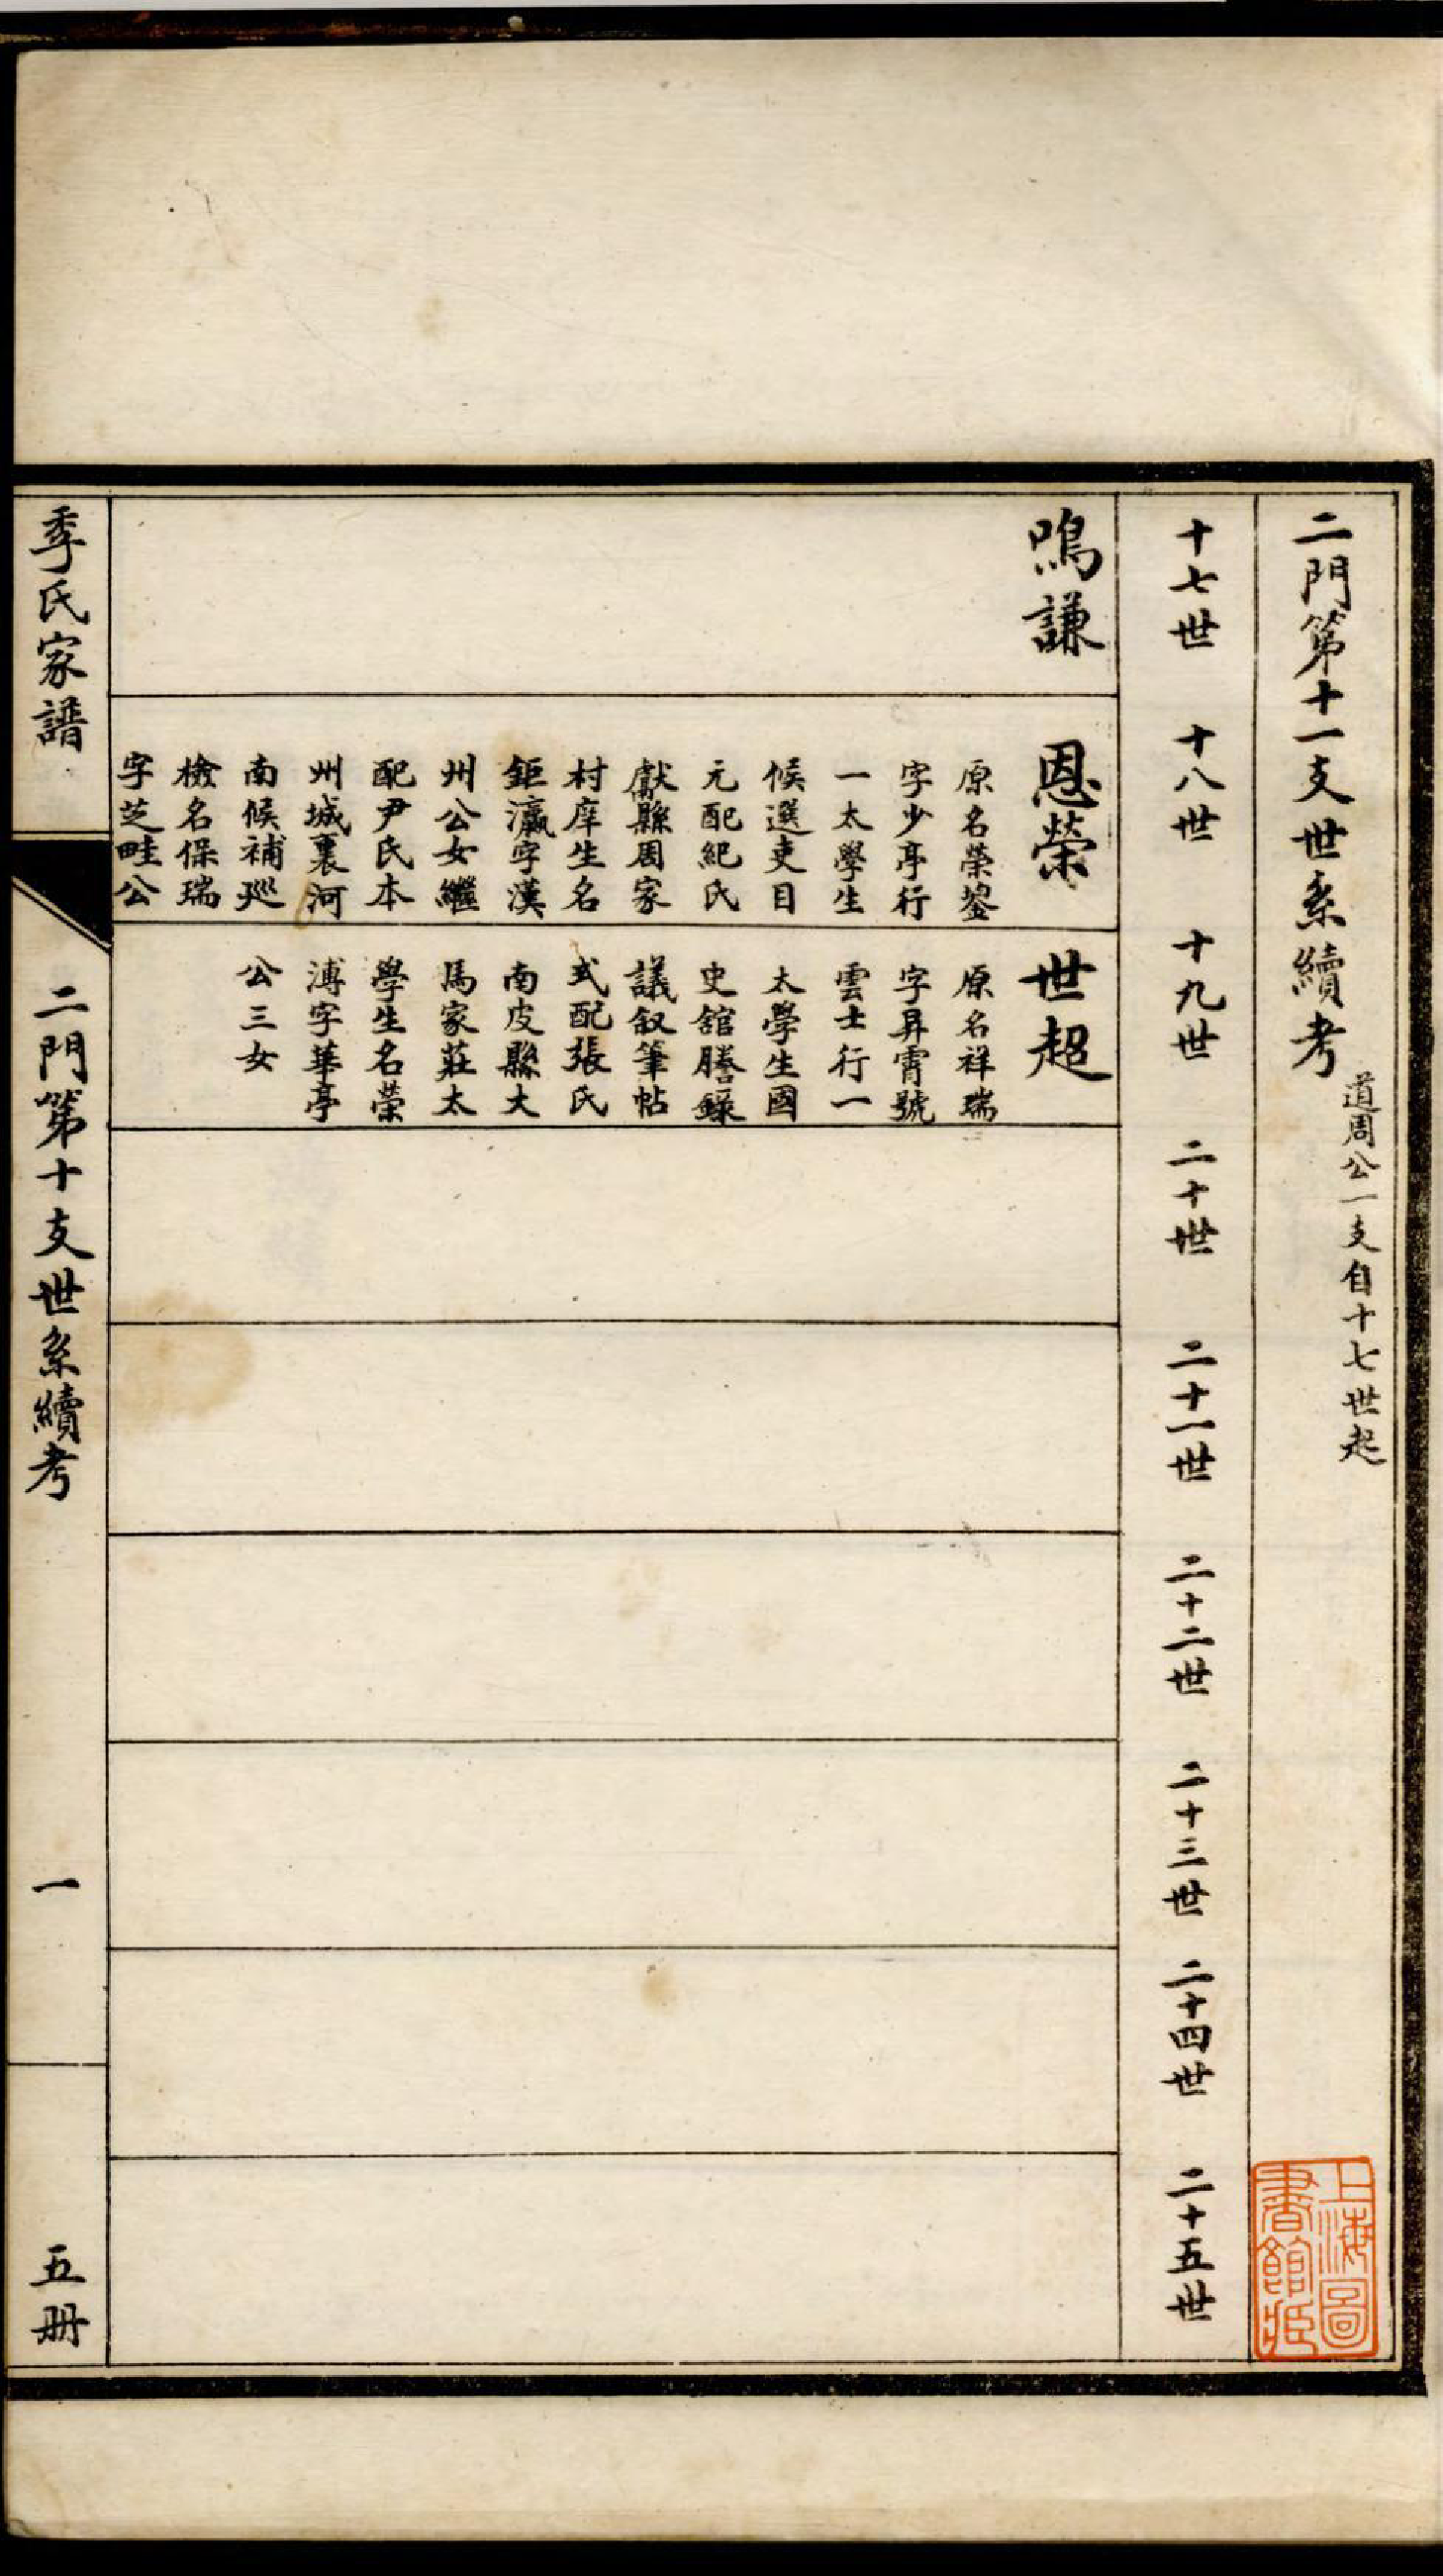 二門第十一支世系續考
道周公一支自十七世起
十七世
十八世
十九世
二十世
二十一世
二十二世
二十三世
二十四世
二十五世
鳴謙
恩榮
原名榮鋆
字少亭行
一太學生
候選吏目
元配紀氏
獻縣周家
村庠生名
鉅瀛字漢
州公女繼
配尹氏本
州城裏河
南候補巡
檢名保瑞
字芝畦公
世超
原名祥瑞
字昇霄號
雲士行一
太學生國
史舘謄錄
議敘筆帖
式配張氏
南皮縣大
馬家莊太
學生名榮
溥字華亭
公三女
季氏家譜
二門第十支世系續考
一
五册
上海圖
書館藏